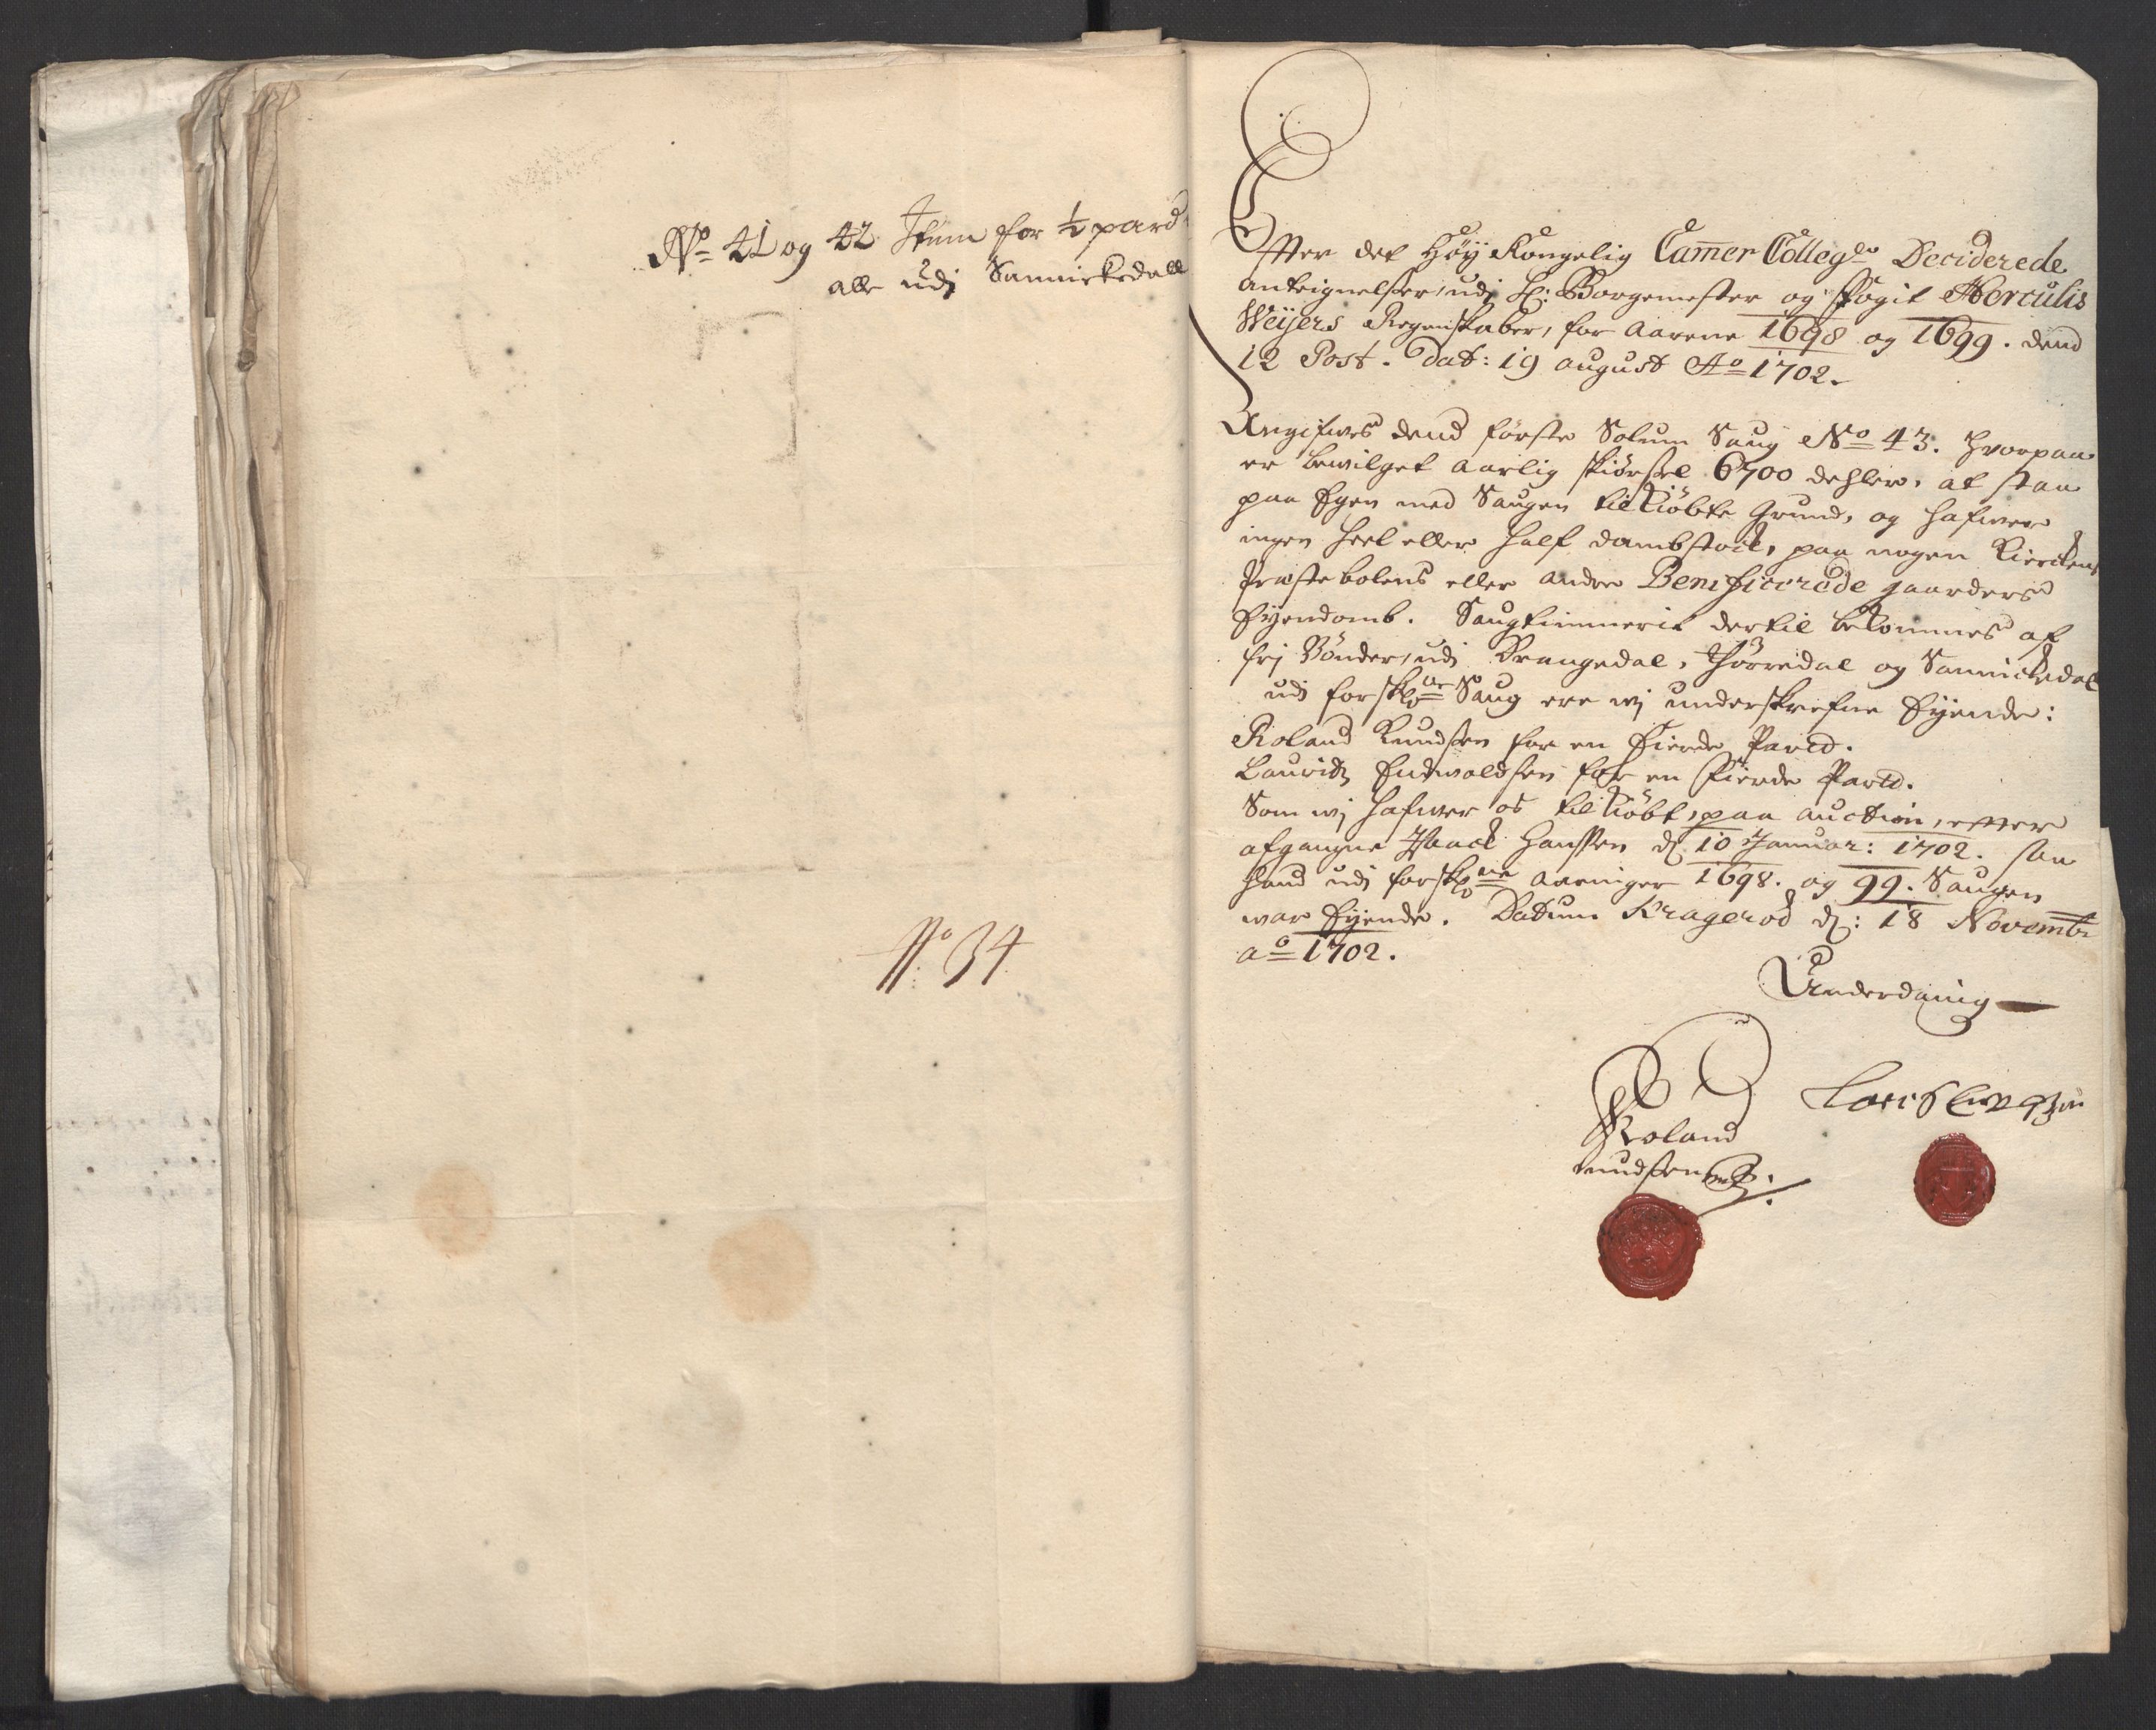 No 41 og 42 Item for ½ pard
alle udj Sannickedall
No: 34
Efter det Høy Kongelig Camer Collegio Deciderede
anteignelser, udj Hr: Borgemester og fogit Herculis
Weyers Regenskaber, for aarene 1698 og 1699. dend
12 Post. Dat: 19 august Ao 1702.
Angifwes dend første Solum Saug No 43. hvorpaa
er bewilget aarlig skiørsel 6700 dehler, at staa
paa Egen med Saugen tilkiøbte Grund, og hafwer
ingen heel eller half dambstock, paa nogen Kierckens
Præstebolens eller andre Benificerede gaarders
Eyendomb. Saugtimmerit dertil bekommes af
frj Bønder, udj Drangedal, Tørredal og Sannickedal
udj forskr:ne Saug ere wj underskrefne Eyende:
Roland Knudsen for en Fierde Pard.
Lauridz Endwoldsen for en Fierde Pard.
Som wj hafwer os tilkiøbt, paa auction, effter
afgangne Isaack Hanssen d: 10 Januar: 1702. saa
hand udj forskr:ne aaringer 1698. og 99. Saugen
war Eyende. Datum Kragerød d: 18 Novembr
ao 1702.
Underdanig
Roland
Knudsen